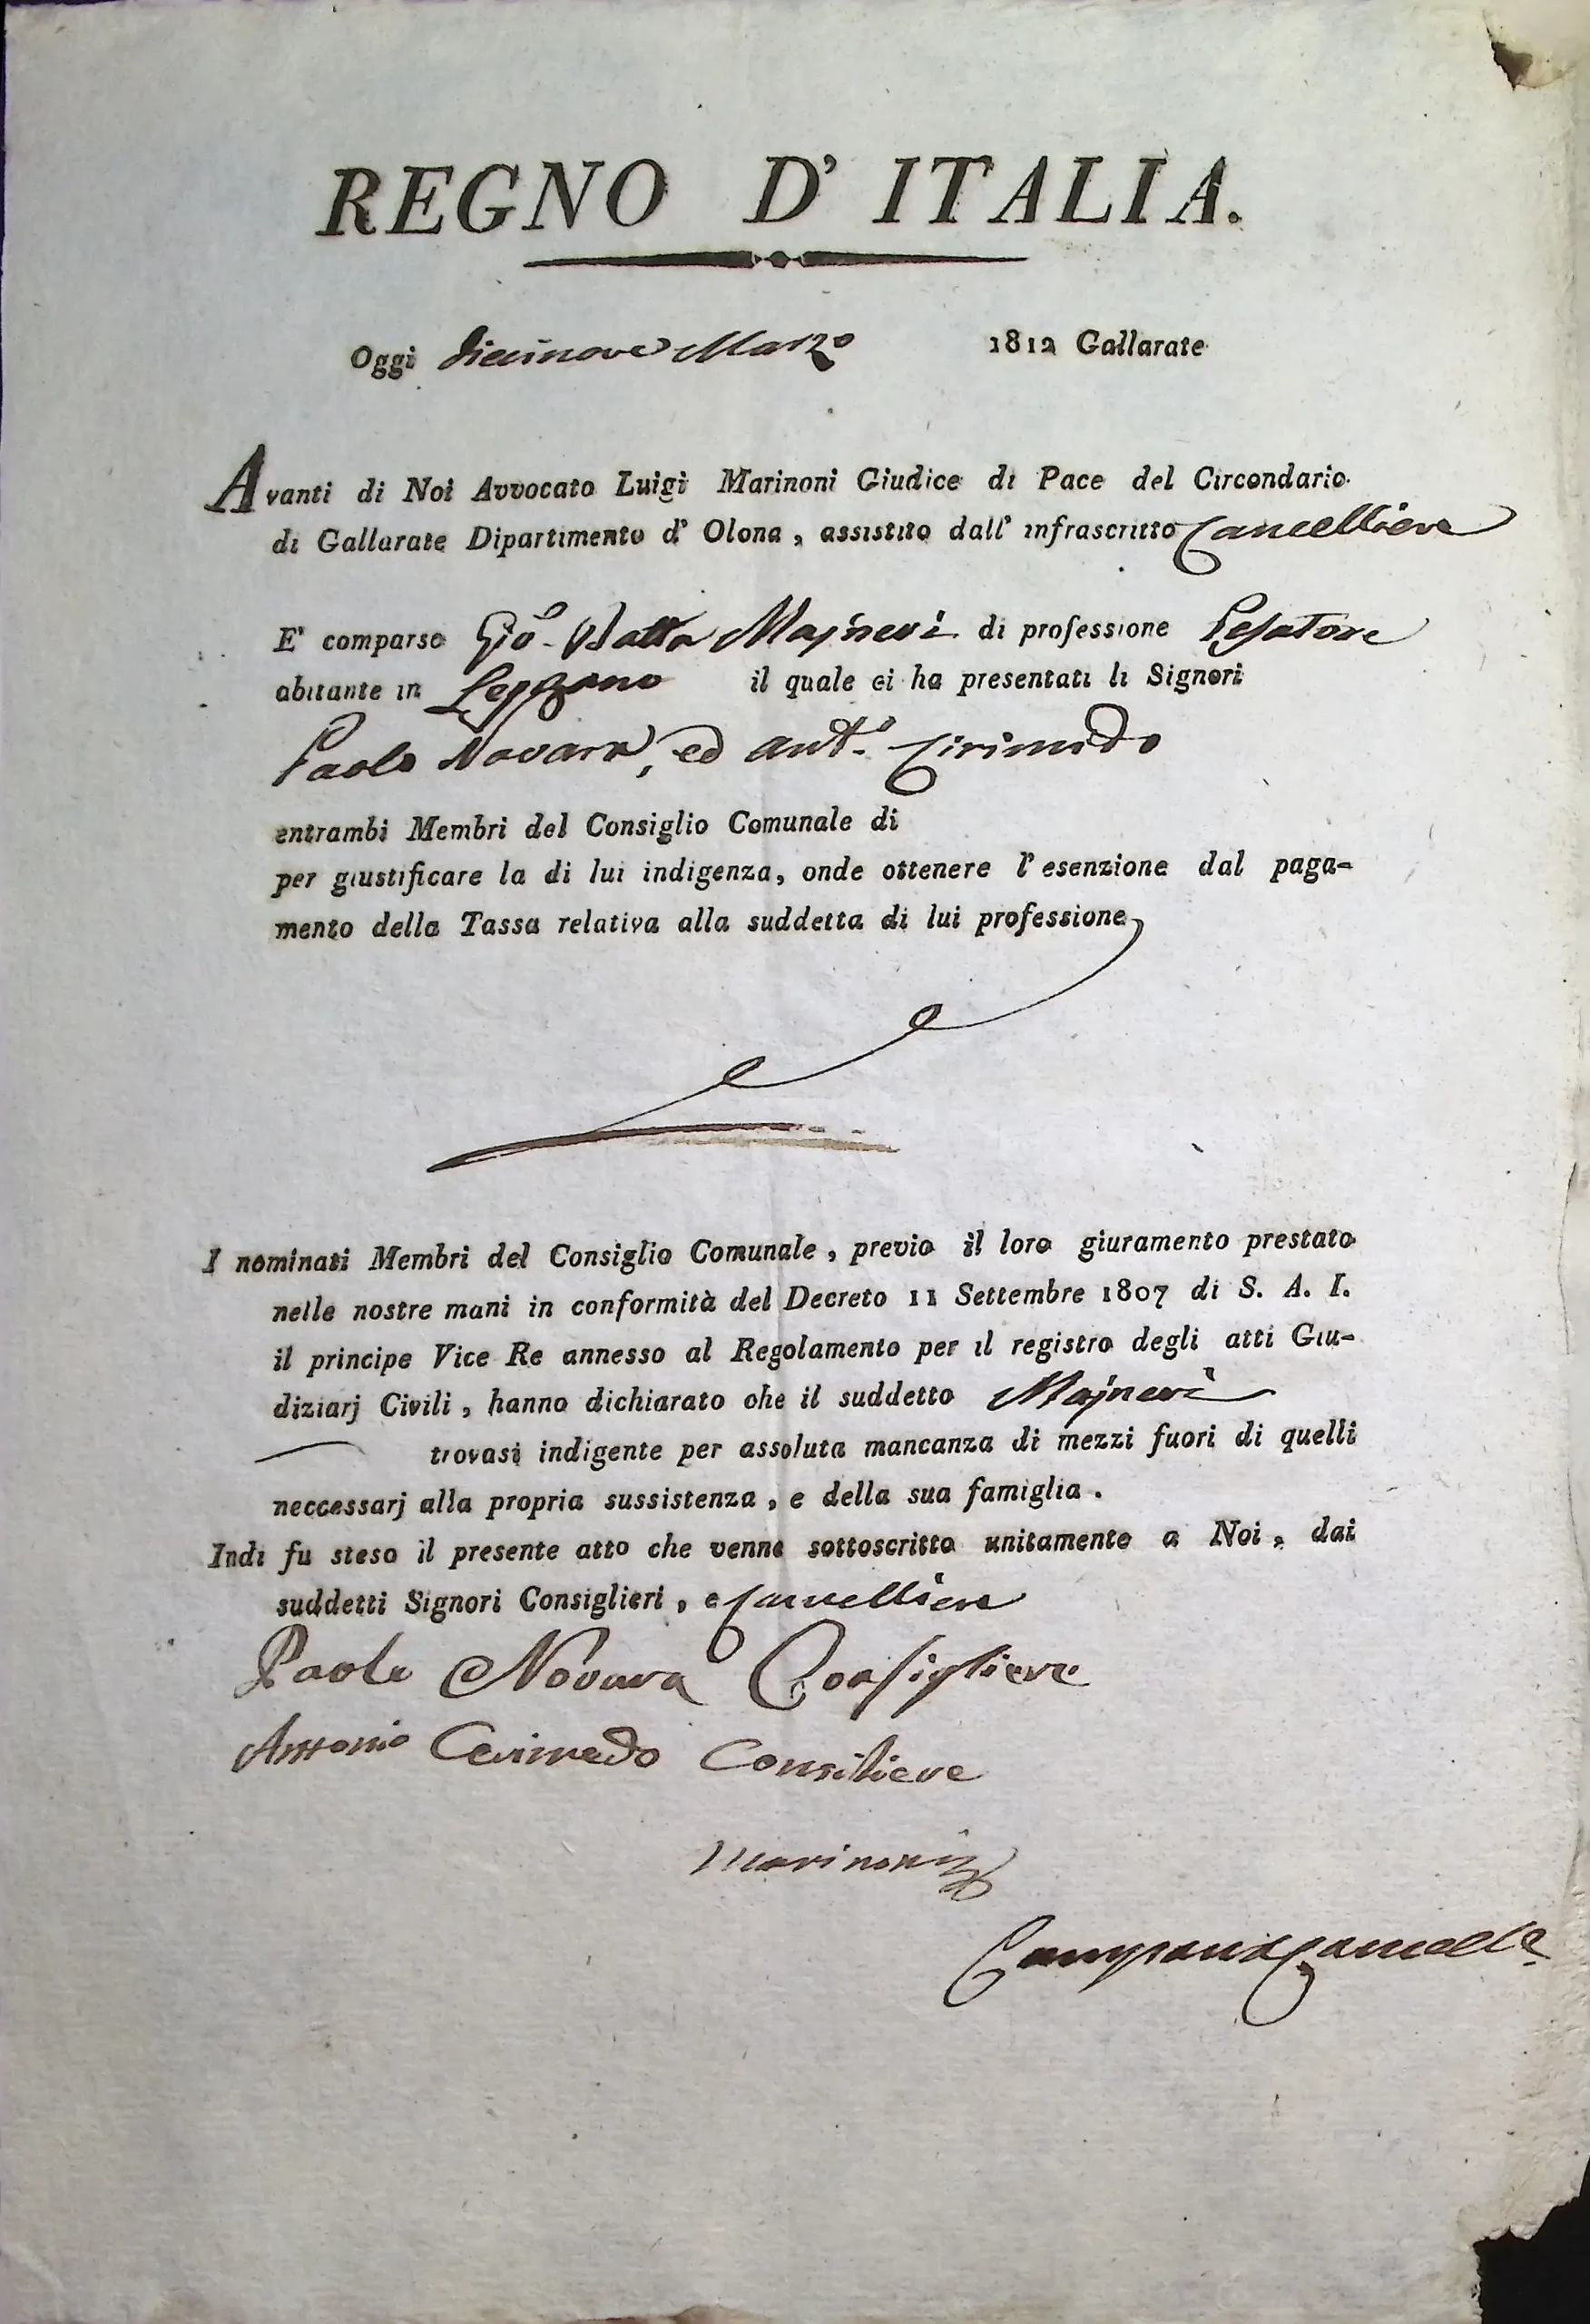 REGNO D' ITALIA.
Oggi diecinove Marzo 1812 Gallarate
Avanti di Noi Avvocato Luigi Marinoni Giudice di Pace del Circondario
di Gallarate Dipartimento d' Olona, assistito dall' infrascritto Cancelliere
E' comparso Gio. Batta Majneri di professione Pesatore
abitante in il quale ci ha presentati li Signori
Paolo Novara, ed Ant.o Cirimedo
entrambi Membri del Consiglio Comunale di
per giustificare la di lui indigenza, onde ottenere l' esenzione dal paga-
mento della Tassa relativa alla suddetta di lui professione
I nominati Membri del Consiglio Comunale, previo il loro giuramento prestato
nelle nostre mani in conformità del Decreto 11 Settembre 1807 di S. A. I.
il principe Vice Re annesso al Regolamento per il registro degli atti Giu-
diziarj Civili, hanno dichiarato che il suddetto Majneri
trovasi indigente per assoluta mancanza di mezzi fuori di quelli
neccessarj alla propria sussistenza, e della sua famiglia.
Indi fu steso il presente atto che venne sottoscritto unitamente a Noi, dai
suddetti Signori Consiglieri, e Cancelliere
Paolo Novara Consigliere
Antonio Cerimedo Consiliere
Marinoni
Campani Cancell.e